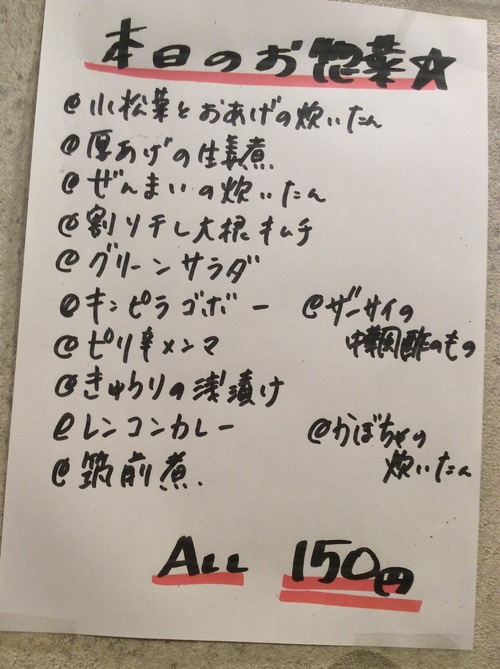 本日のお惣菜☆
@小松菜とおあげの炊いたん
@厚あげの生姜煮
@ぜんまいの炊いたん
@割り干し大根キムチ
@グリーンサラダ
@キンピラゴボー
@ピリ辛メンマ
@きゅうりの浅漬け
@レンコンカレー
@筑前煮
@ザーサイの
中華風酢のもの
@かぼちゃの
炊いたん
ALL 150円